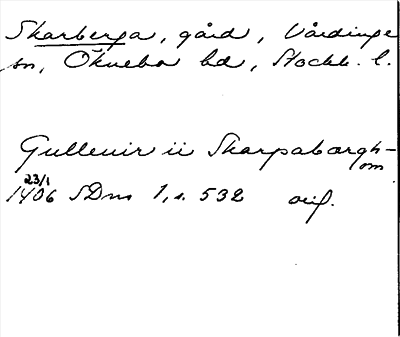 Skarberga, gård, Vårdinge
sn, Öknebo hd, Stockh. l.
Gullenir ii Skarpaborgh-
om
23/1
1406 SDns 1, s. 532 orig.